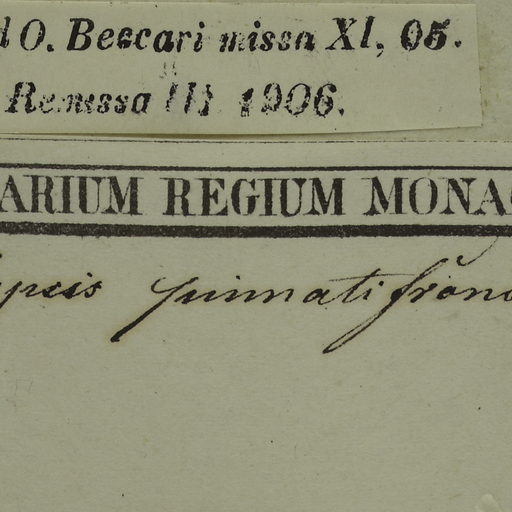 d O. Beccari missa XI, 05.
Remissa III 1906.
ARIUM REGIUM MONA
psis pinnatifrons